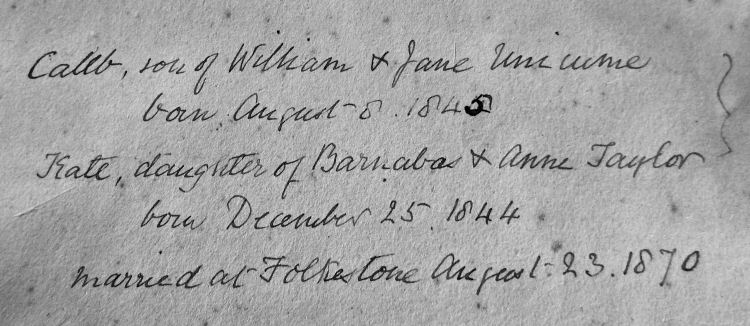 Caleb, son of William & Jane Unicume
born August 8. 1845
Kate, daughter of Barnabas & Anne Taylor
born December 25. 1844
married at Folkestone August 23. 1870